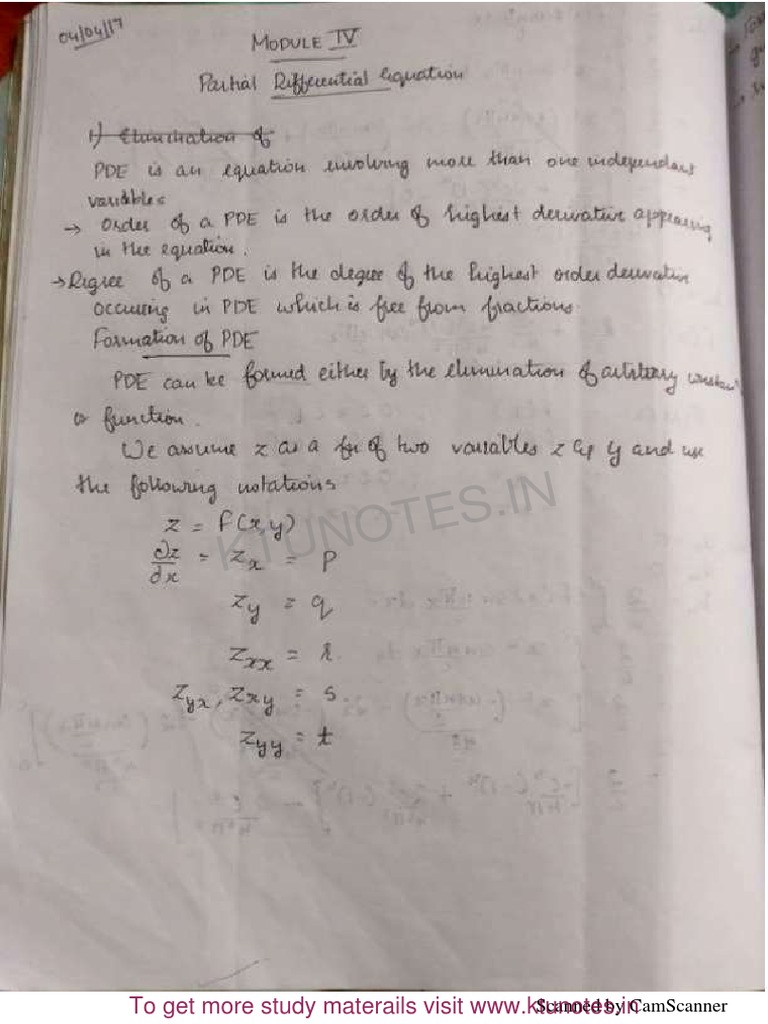 04/04/17
MODULE IV
Partial Differential Equation
1) Elimination of
PDE is an equation involving more than one independent
variables
→ Order of a PDE is the order of highest derivative appearing
in the equation.
→ Degree of a PDE is the degree of the highest order derivative
occuring in PDE which is free from fractions.
Formation of PDE
PDE can be formed either by the elimination of arbitrary constant
or function.
We assume z as a fn of two variables x & y and use
the following notations
z = f(x,y)
∂z/∂x = z_x = p
z_y = q
z_xx = r
z_yx, z_xy = s
z_yy = t
KTUNOTES.IN
To get more study materails visit www.ktunotes.in
Scanned by CamScanner